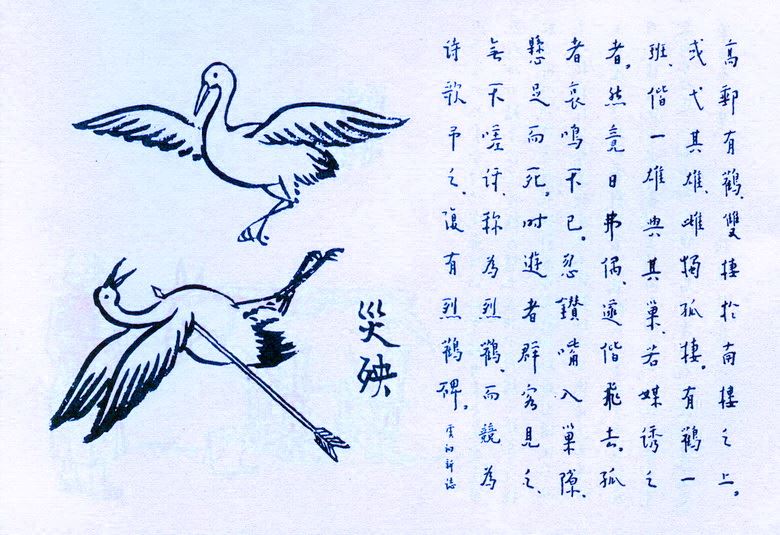 高郵有鸛、雙棲於南樓之上。
或弋其雄、雌獨孤棲。有鸛一
班、偕一雄與其巢、若媒誘之
者。然竟日弗偶、遂偕飛去。孤
者哀鳴不已。忽鑽嘴入巢隙、
懸足而死。時遊者群客見之、
無不嗟訝、稱為烈鸛、而競為
詩歌弔之、復有烈鸛碑。虞初新誌
災殃